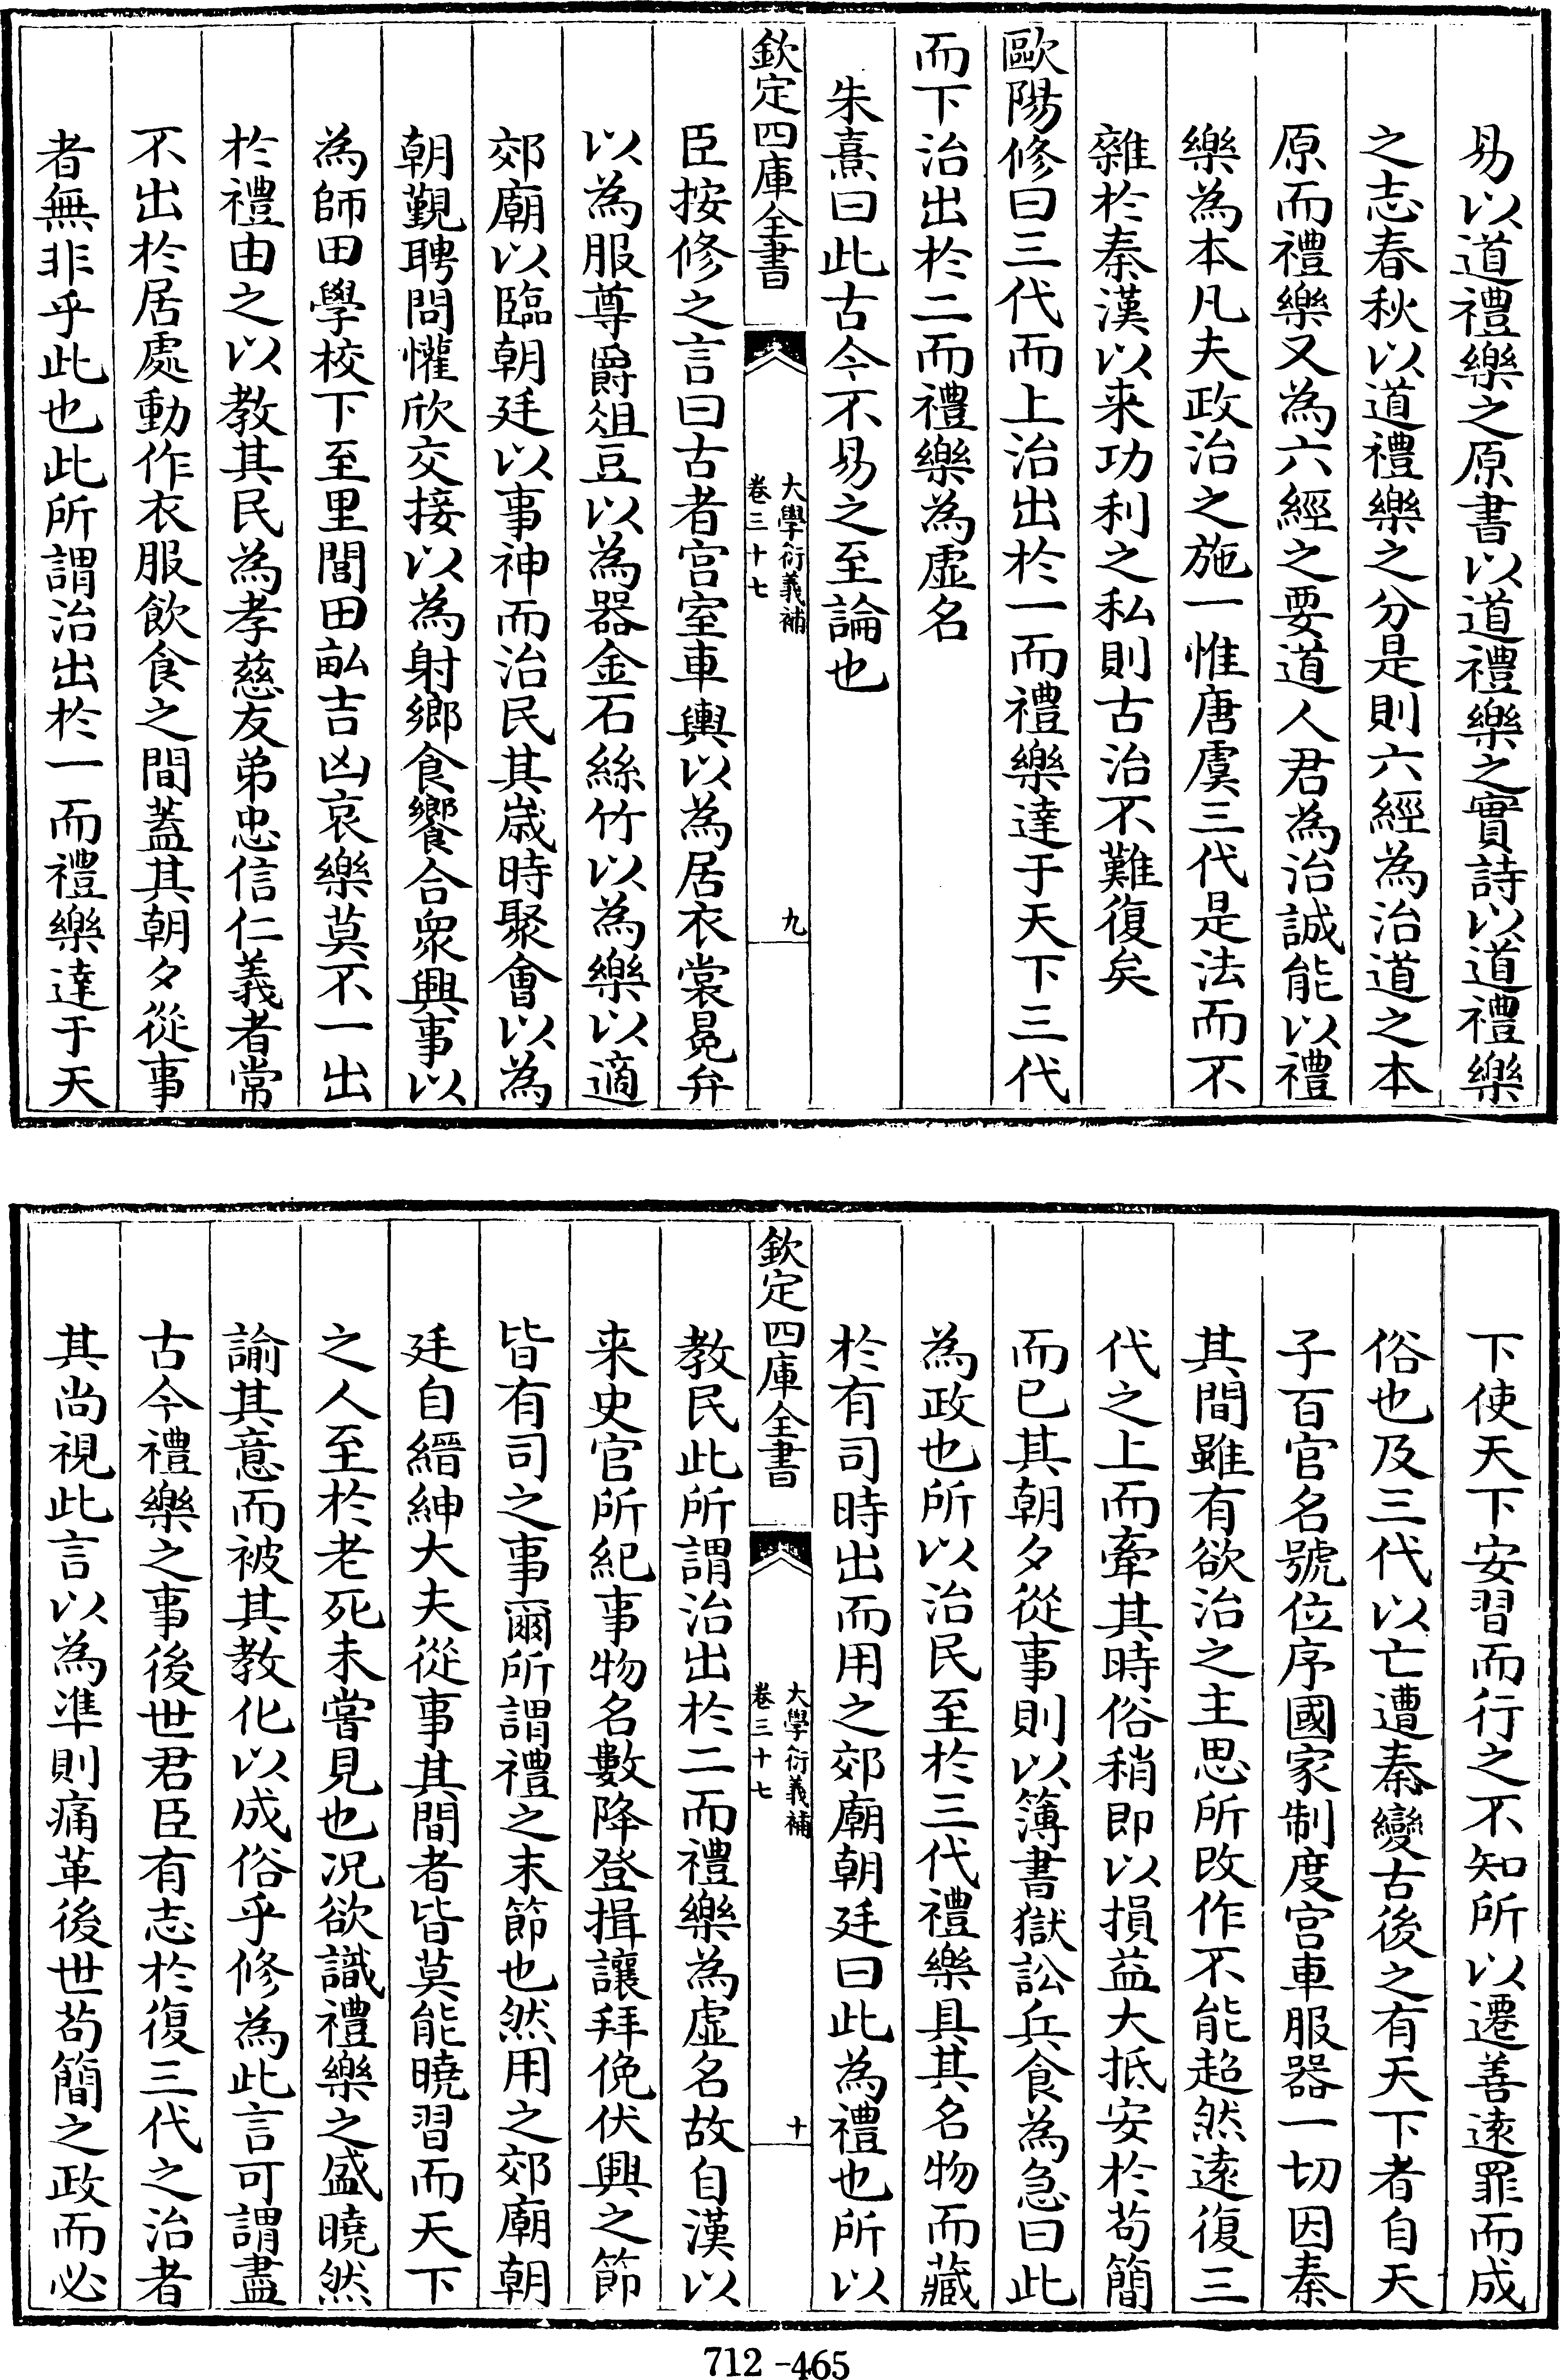 易以道禮樂之原書以道禮樂之實詩以道禮樂
之志春秋以道禮樂之分是則六經為治道之本
原而禮樂又為六經之要道人君為治誠能以禮
樂為本凡夫政治之施一惟唐虞三代是法而不
雜於秦漢以来功利之私則古治不難復矣
歐陽修曰三代而上治出於一而禮樂達于天下三代
而下治出於二而禮樂為虛名
朱熹曰此古今不易之至論也
欽定四庫全書
大學衍義補
卷三十七
九
臣按修之言曰古者宮室車輿以為居衣裳冕弁
以為服尊爵俎豆以為器金石絲竹以為樂以適
郊廟以臨朝廷以事神而治民其歲時聚會以為
朝覲聘問懽欣交接以為射鄉食饗合衆興事以
為師田學校下至里閭田畝吉凶哀樂莫不一出
於禮由之以教其民為孝慈友弟忠信仁義者常
不出於居處動作衣服飲食之間蓋其朝夕從事
者無非乎此也此所謂治出於一而禮樂達于天
下使天下安習而行之不知所以遷善遠罪而成
俗也及三代以亡遭秦變古後之有天下者自天
子百官名號位序國家制度宮車服器一切因秦
其間雖有欲治之主思所改作不能超然遠復三
代之上而牽其時俗稍即以損益大抵安於苟簡
而已其朝夕從事則以簿書獄訟兵食為急曰此
為政也所以治民至於三代禮樂具其名物而藏
於有司時出而用之郊廟朝廷曰此為禮也所以
欽定四庫全書
大學衍義補
卷三十七
十
教民此所謂治出於二而禮樂為虛名故自漢以
来史官所紀事物名數降登揖讓拜俛伏興之節
皆有司之事爾所謂禮之末節也然用之郊廟朝
廷自縉紳大夫從事其間者皆莫能曉習而天下
之人至於老死未嘗見也况欲識禮樂之盛曉然
諭其意而被其教化以成俗乎修為此言可謂盡
古今禮樂之事後世君臣有志於復三代之治者
其尚視此言以為準則痛革後世苟簡之政而必
712-465